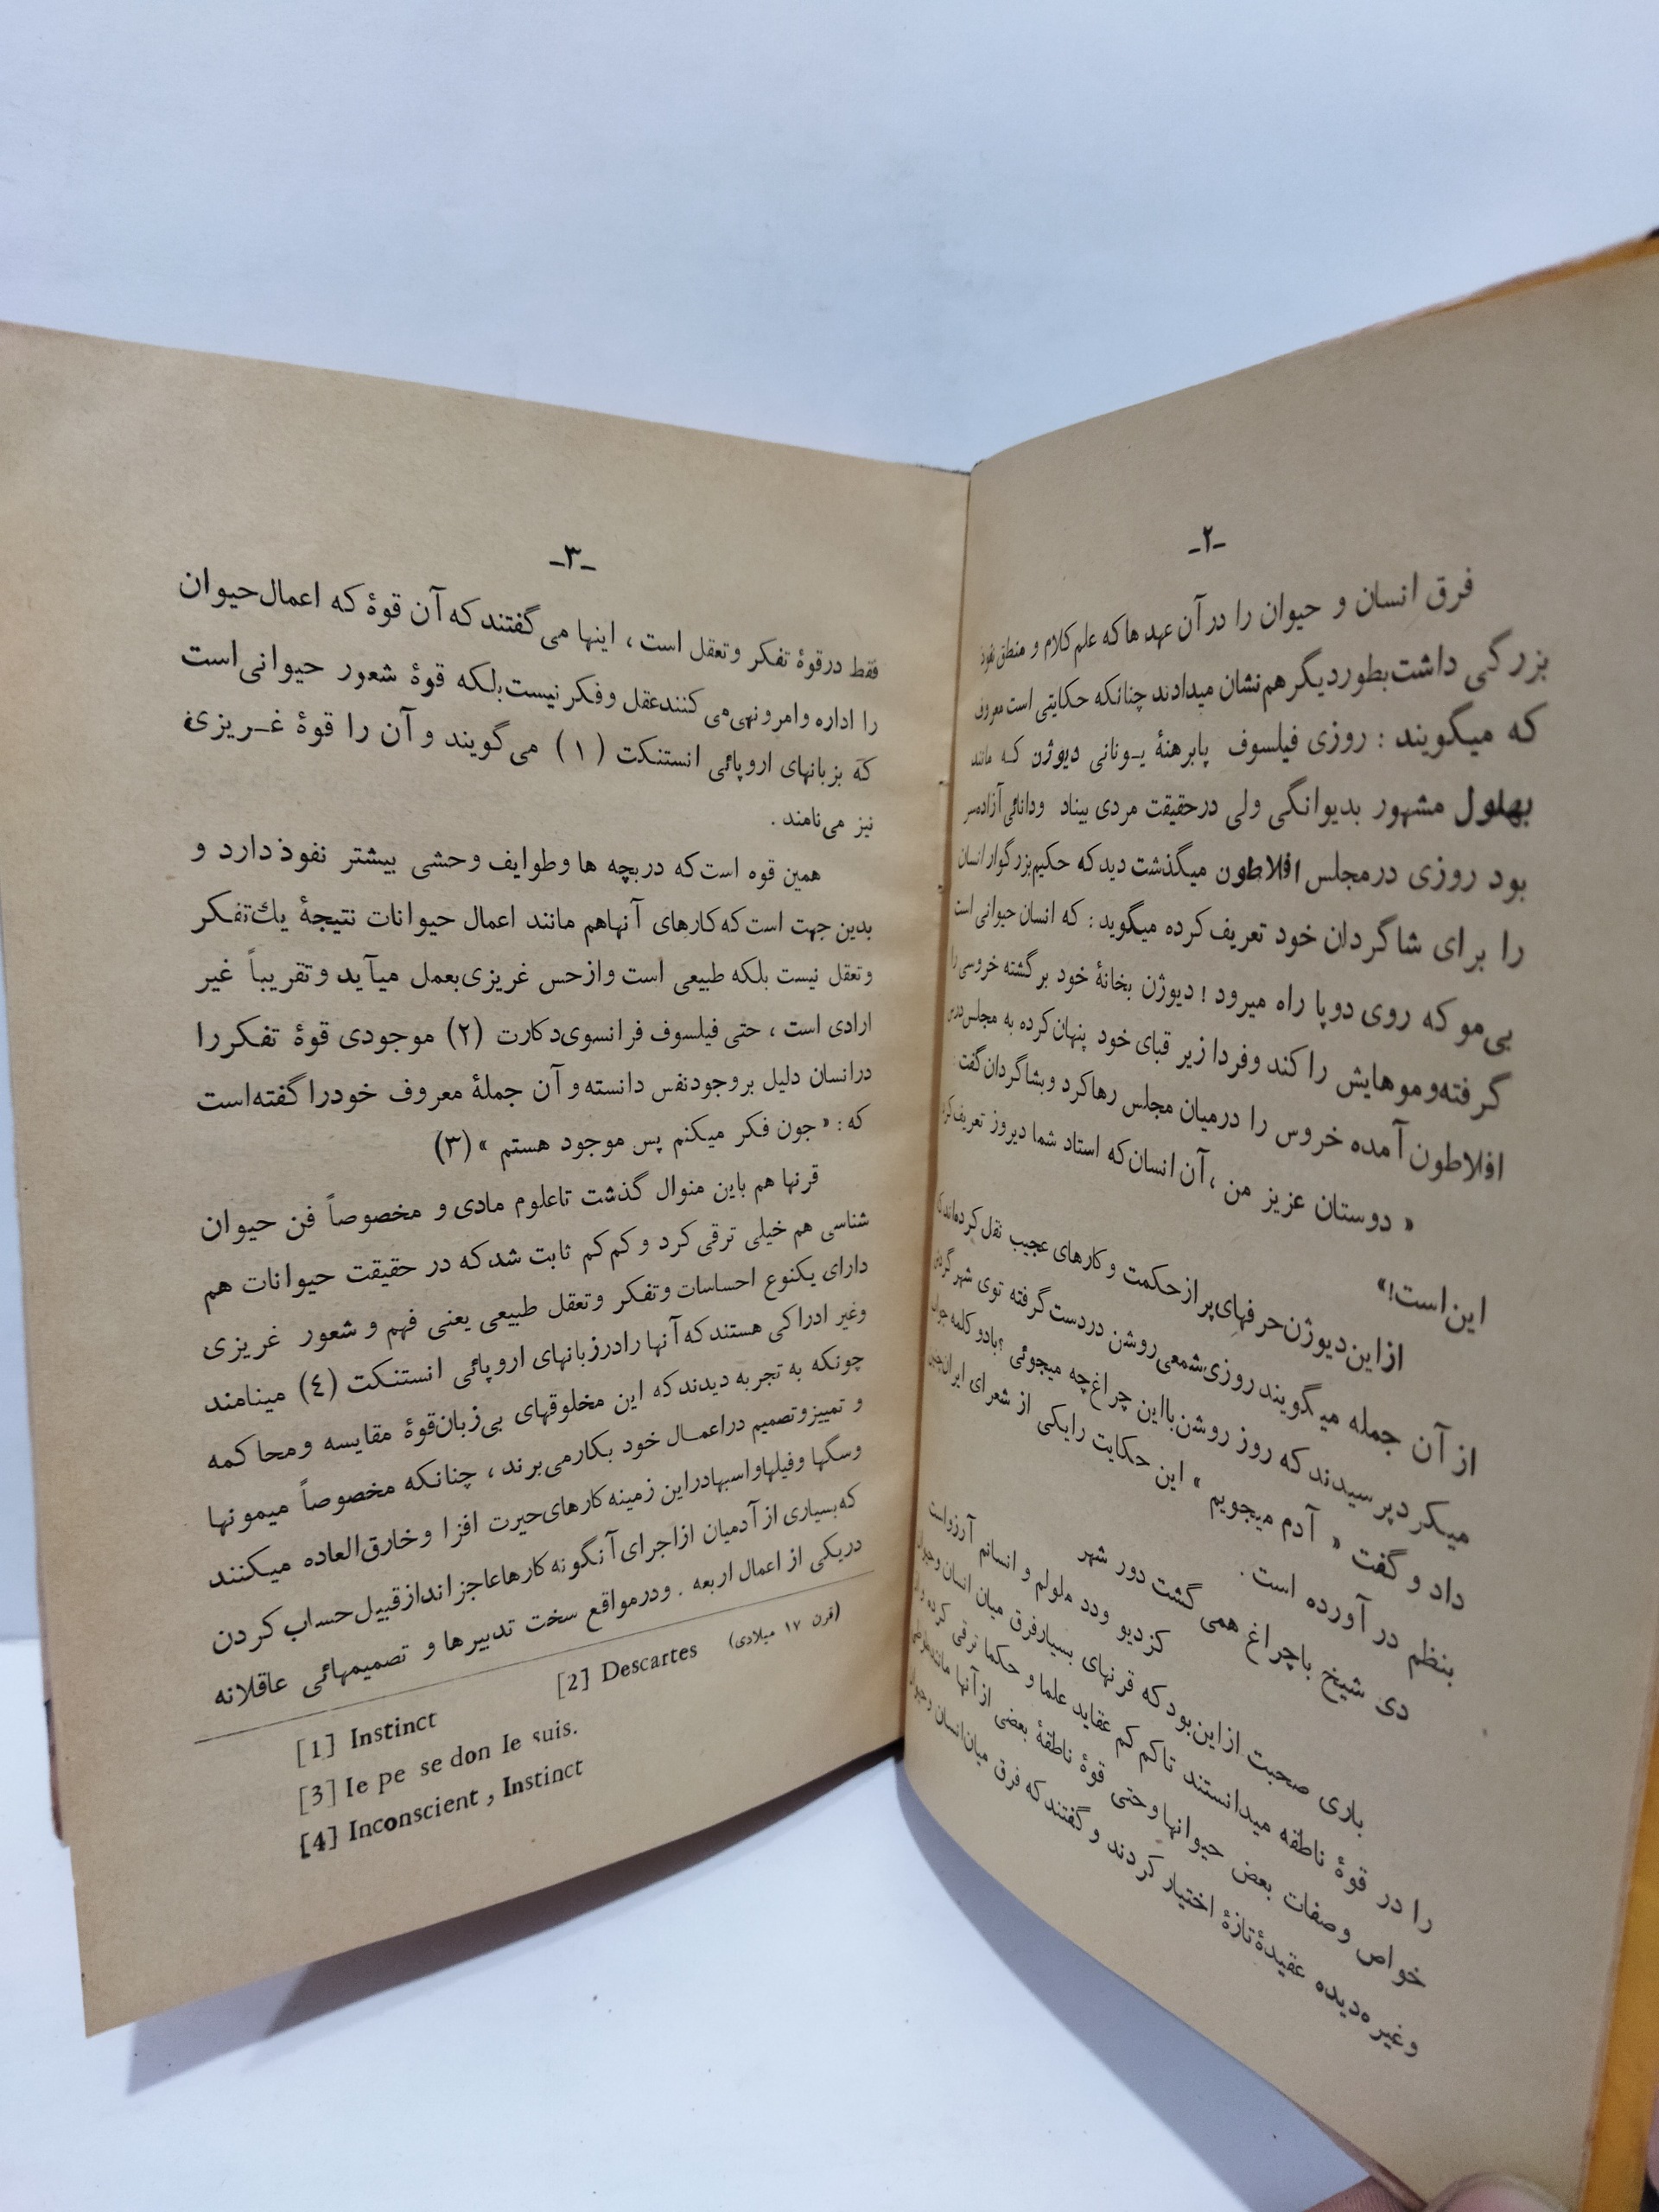 -۲-
فرق انسان و حیوان را در آن عهد ها که علم کلام و منطق نفوذ
بزرگی داشت بطور دیگر هم نشان میدادند چنانکه حکایتی است معروف
که میگویند : روزی فیلسوف پابرهنهٔ یـونانی دیوژن کـه مانند
بهلول مشهور بدیوانگی ولی درحقیقت مردی بیناد ودانائی آزاده‌سر
بود روزی درمجلس افلاطون میگذشت دید که حکیم بزرگوار انسان
را برای شاگردان خود تعریف کرده میگوید : که انسان حیوانی است
بی‌مو که روی دوپا راه میرود ! دیوژن بخانهٔ خود برگشته خروسی را
گرفته‌وموهایش را کند وفردا زیر قبای خود پنهان کرده به مجلس درس
افلاطون آمده خروس را درمیان مجلس رها کرد وبشاگردان گفت :
« دوستان عزیز من ، آن انسان که استاد شما دیروز تعریف کرد
این‌است!»
ازاین دیوژن حرفهای پر ازحکمت و کارهای عجیب نقل کرده‌اند که
از آن جمله میگویند روزی شمعی روشن دردست گرفته توی شهر گردش
میکرد پرسیدند که روز روشن بااین چراغ چه میجوئی ؟ بادو کلمه جواب
داد و گفت « آدم میجویم » این حکایت رایکی از شعرای ایران چنین
بنظم در آورده است .
دی شیخ باچراغ همی گشت دور شهر
کز دیو ودد ملولم و انسانم آرزواست
باری صحبت ازاین‌بود که قرنهای بسیارفرق میان انسان وحیوان
را در قوهٔ ناطقه میدانستند تاکم کم عقاید علما و حکما ترقی کرده و
خواص وصفات بعض حیوانها وحتی قوهٔ ناطقهٔ بعضی از آنها مانند طوطی
وغیره دیده عقیدهٔ تازهٔ اختیار کردند و گفتند که فرق میان انسان وحیوان
-۳-
فقط درقوهٔ تفکر وتعقل است ، اینها می گفتند که آن قوهٔ که اعمال حیوان
را اداره وامرونهی می کنند عقل وفکر نیست بلکه قوهٔ شعور حیوانی است
که بزبانهای اروپائی انستنکت ( ۱ ) می گویند و آن را قوهٔ غـریزی
نیز می‌نامند .
همین قوه است که دربچه ها وطوایف وحشی بیشتر نفوذ دارد و
بدین جهت است که کارهای آنهاهم مانند اعمال حیوانات نتیجهٔ یك تفکر
وتعقل نیست بلکه طبیعی است وازحس غریزی بعمل میآید وتقریباً غیر
ارادی است ، حتی فیلسوف فرانسوی دکارت (۲) موجودی قوهٔ تفکر را
درانسان دلیل بروجودنفس دانسته و آن جملهٔ معروف خودرا گفته‌است
که : «جون فکر میکنم پس موجود هستم » (۳)
قرنها هم باین منوال گذشت تاعلوم مادی و مخصوصاً فن حیوان
شناسی هم خیلی ترقی کرد و کم کم ثابت شد که در حقیقت حیوانات هم
دارای یکنوع احساسات وتفکر وتعقل طبیعی یعنی فهم و شعور غریزی
وغیر ادراکی هستند که آنها رادرزبانهای اروپائی انستنکت (٤) مینامند
چونکه به تجربه دیدند که این مخلوقهای بی‌زبان‌قوهٔ مقایسه ومحاکمه
و تمییزوتصمیم دراعمـال خود بکارمی‌برند ، چنانکه مخصوصاً میمونها
وسگها وفیلهاواسبهادراین زمینه کارهای حیرت افزا وخارق العاده میکنند
که بسیاری از آدمیان ازاجرای آنگونه کارهاعاجزاند ازقبیل حساب کردن
دریکی از اعمال اربعه . ودرمواقع سخت تدبیرها و تصمیمهائی عاقلانه
[1] Instinct [2] Descartes (قرن ۱۷ میلادی)
[3] Ie pe se don Ie suis.
[4] Inconscient , Instinct